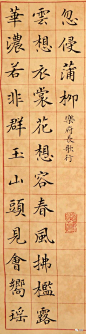 忽侵蒲柳
樂府長歌行
雲想衣裳花想容春風拂檻露
華濃若非群玉山頭見會嚮瑤